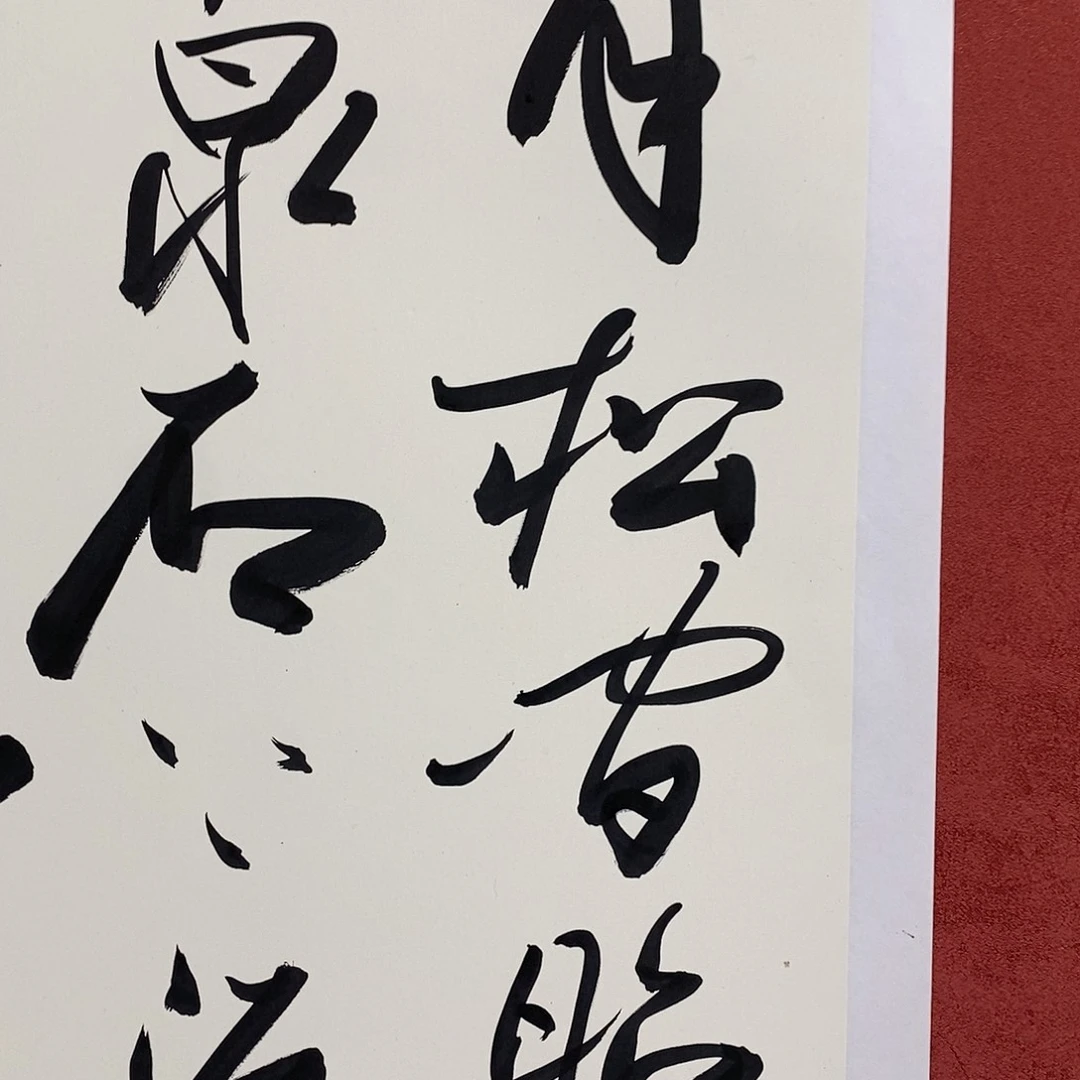 月松間照
泉石上流